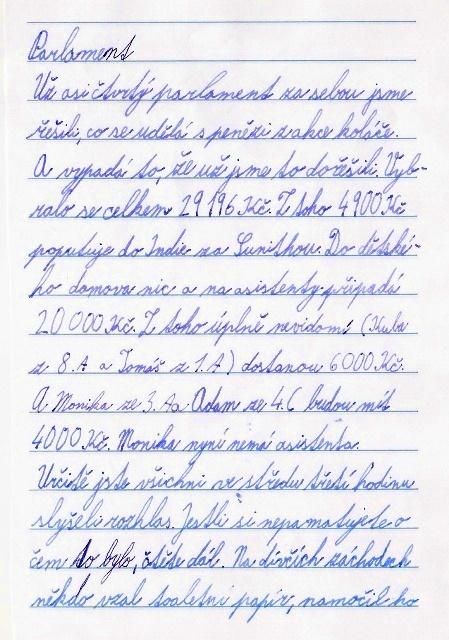 Parlament
Už asi čtvrtý parlament za sebou jsme
řešili, co se udělá s penězi z akce koláče.
A vypadá to, že už jsme to dořešili. Vyb-
ralo se celkem 29 196 Kč. Z toho 4 900 Kč
poputuje do Indie za Sunithou. Do dětské-
ho domova nic a na asistenty připadá
20 000 Kč. Z toho úplně nevidomí (Kuba
z 8. A a Tomáš z 1. A) dostanou 6000 Kč.
A Monika ze 3. A a Adam ze 4. C budou mít
4000 Kč. Monika nyní nemá asistenta.
Určitě jste všichni ve středu třetí hodinu
slyšeli rozhlas. Jestli si nepamatujete o
čem to bylo, čtěte dál. Na dívčích záchodech
někdo vzal toaletní papír, namočil ho